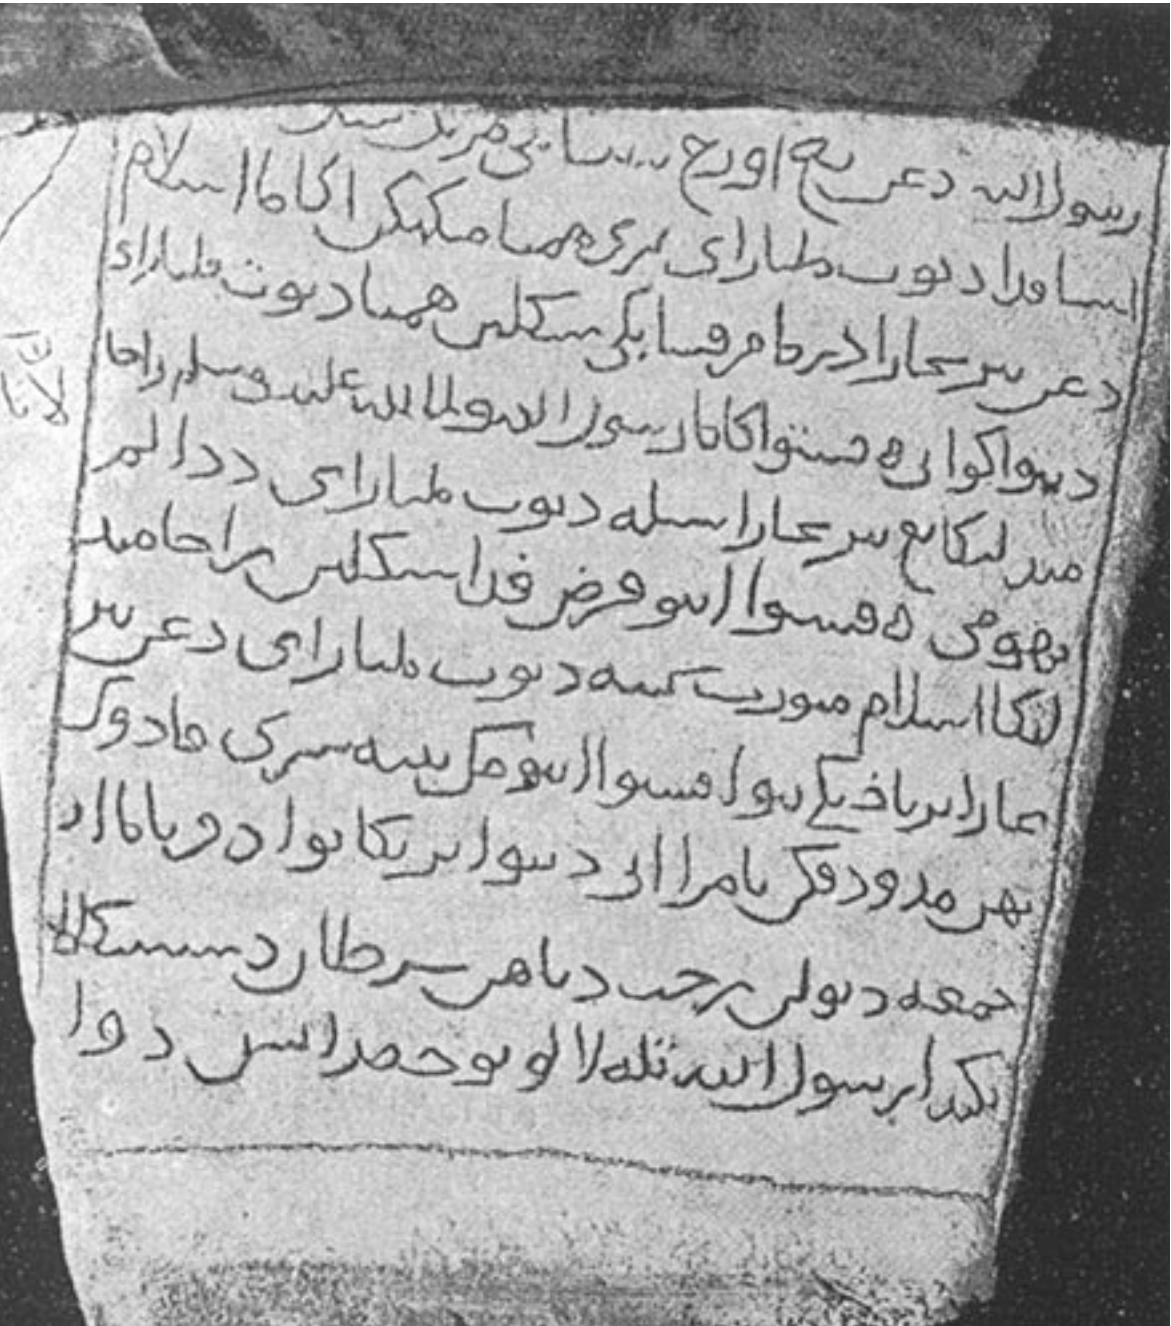 رسول الله دعن يڠ اورڠ ... باڬي مريك
اسا فدا ديوت مليا راي بري همبا منكهكن اكاما اسلام
دعن بنر بجارا درما مرقسا بكي سكلين همبا ديوت مليا راي
دبنوا كو اين فنتوا اكاما رسول الله صلى الله عليه وسلم راجا
مندلكا يع بنر بجارا سبله ديوت مليا راي ددالم
بهومي فنتوا ايت فرض فدا سكلين راجا مند
لكا اسلام منورت ستته ديوت مليا راي دعن بنر
بجارا بربجيكي بنوا فنتوا ايت مك تيته سري فادوك
تهن مدودقكن تامرا اين دبنوا ترڠكانو اد فرتاما اد
جمعه دبولن رجب دتاهن سرطان دسسنكالا
بكندا رسول الله تله لالو توجه راتس دوا